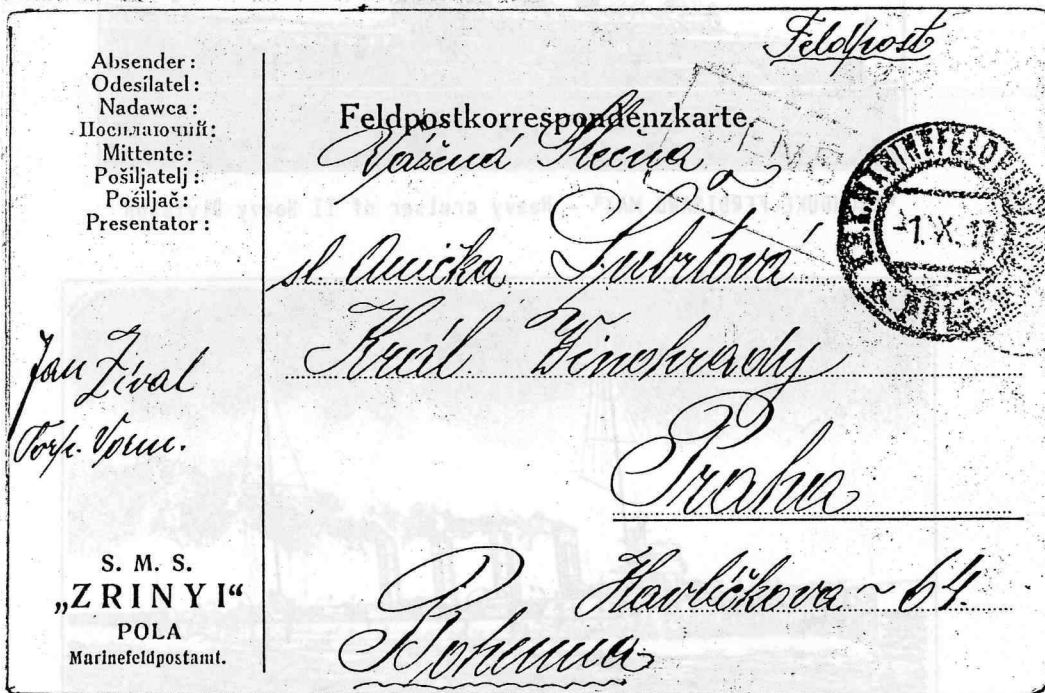 Feldpost
Absender:
Odesílatel:
Nadawca:
Посилаючий:
Mittente:
Pošiljatelj:
Pošiljač:
Presentator:
Feldpostkorrespondenzkarte.
Vážená Slečna
sl. Anička Šubrtová
Král. Vinohrady
Praha
Havlíčkova 64.
Bohemia
Jan Zíval
Torp. Vorm.
S. M. S.
„ZRINYI“
POLA
Marinefeldpostamt.
K.u.K. MARINEFELDPOSTAMT
-1. X. 17
POLA